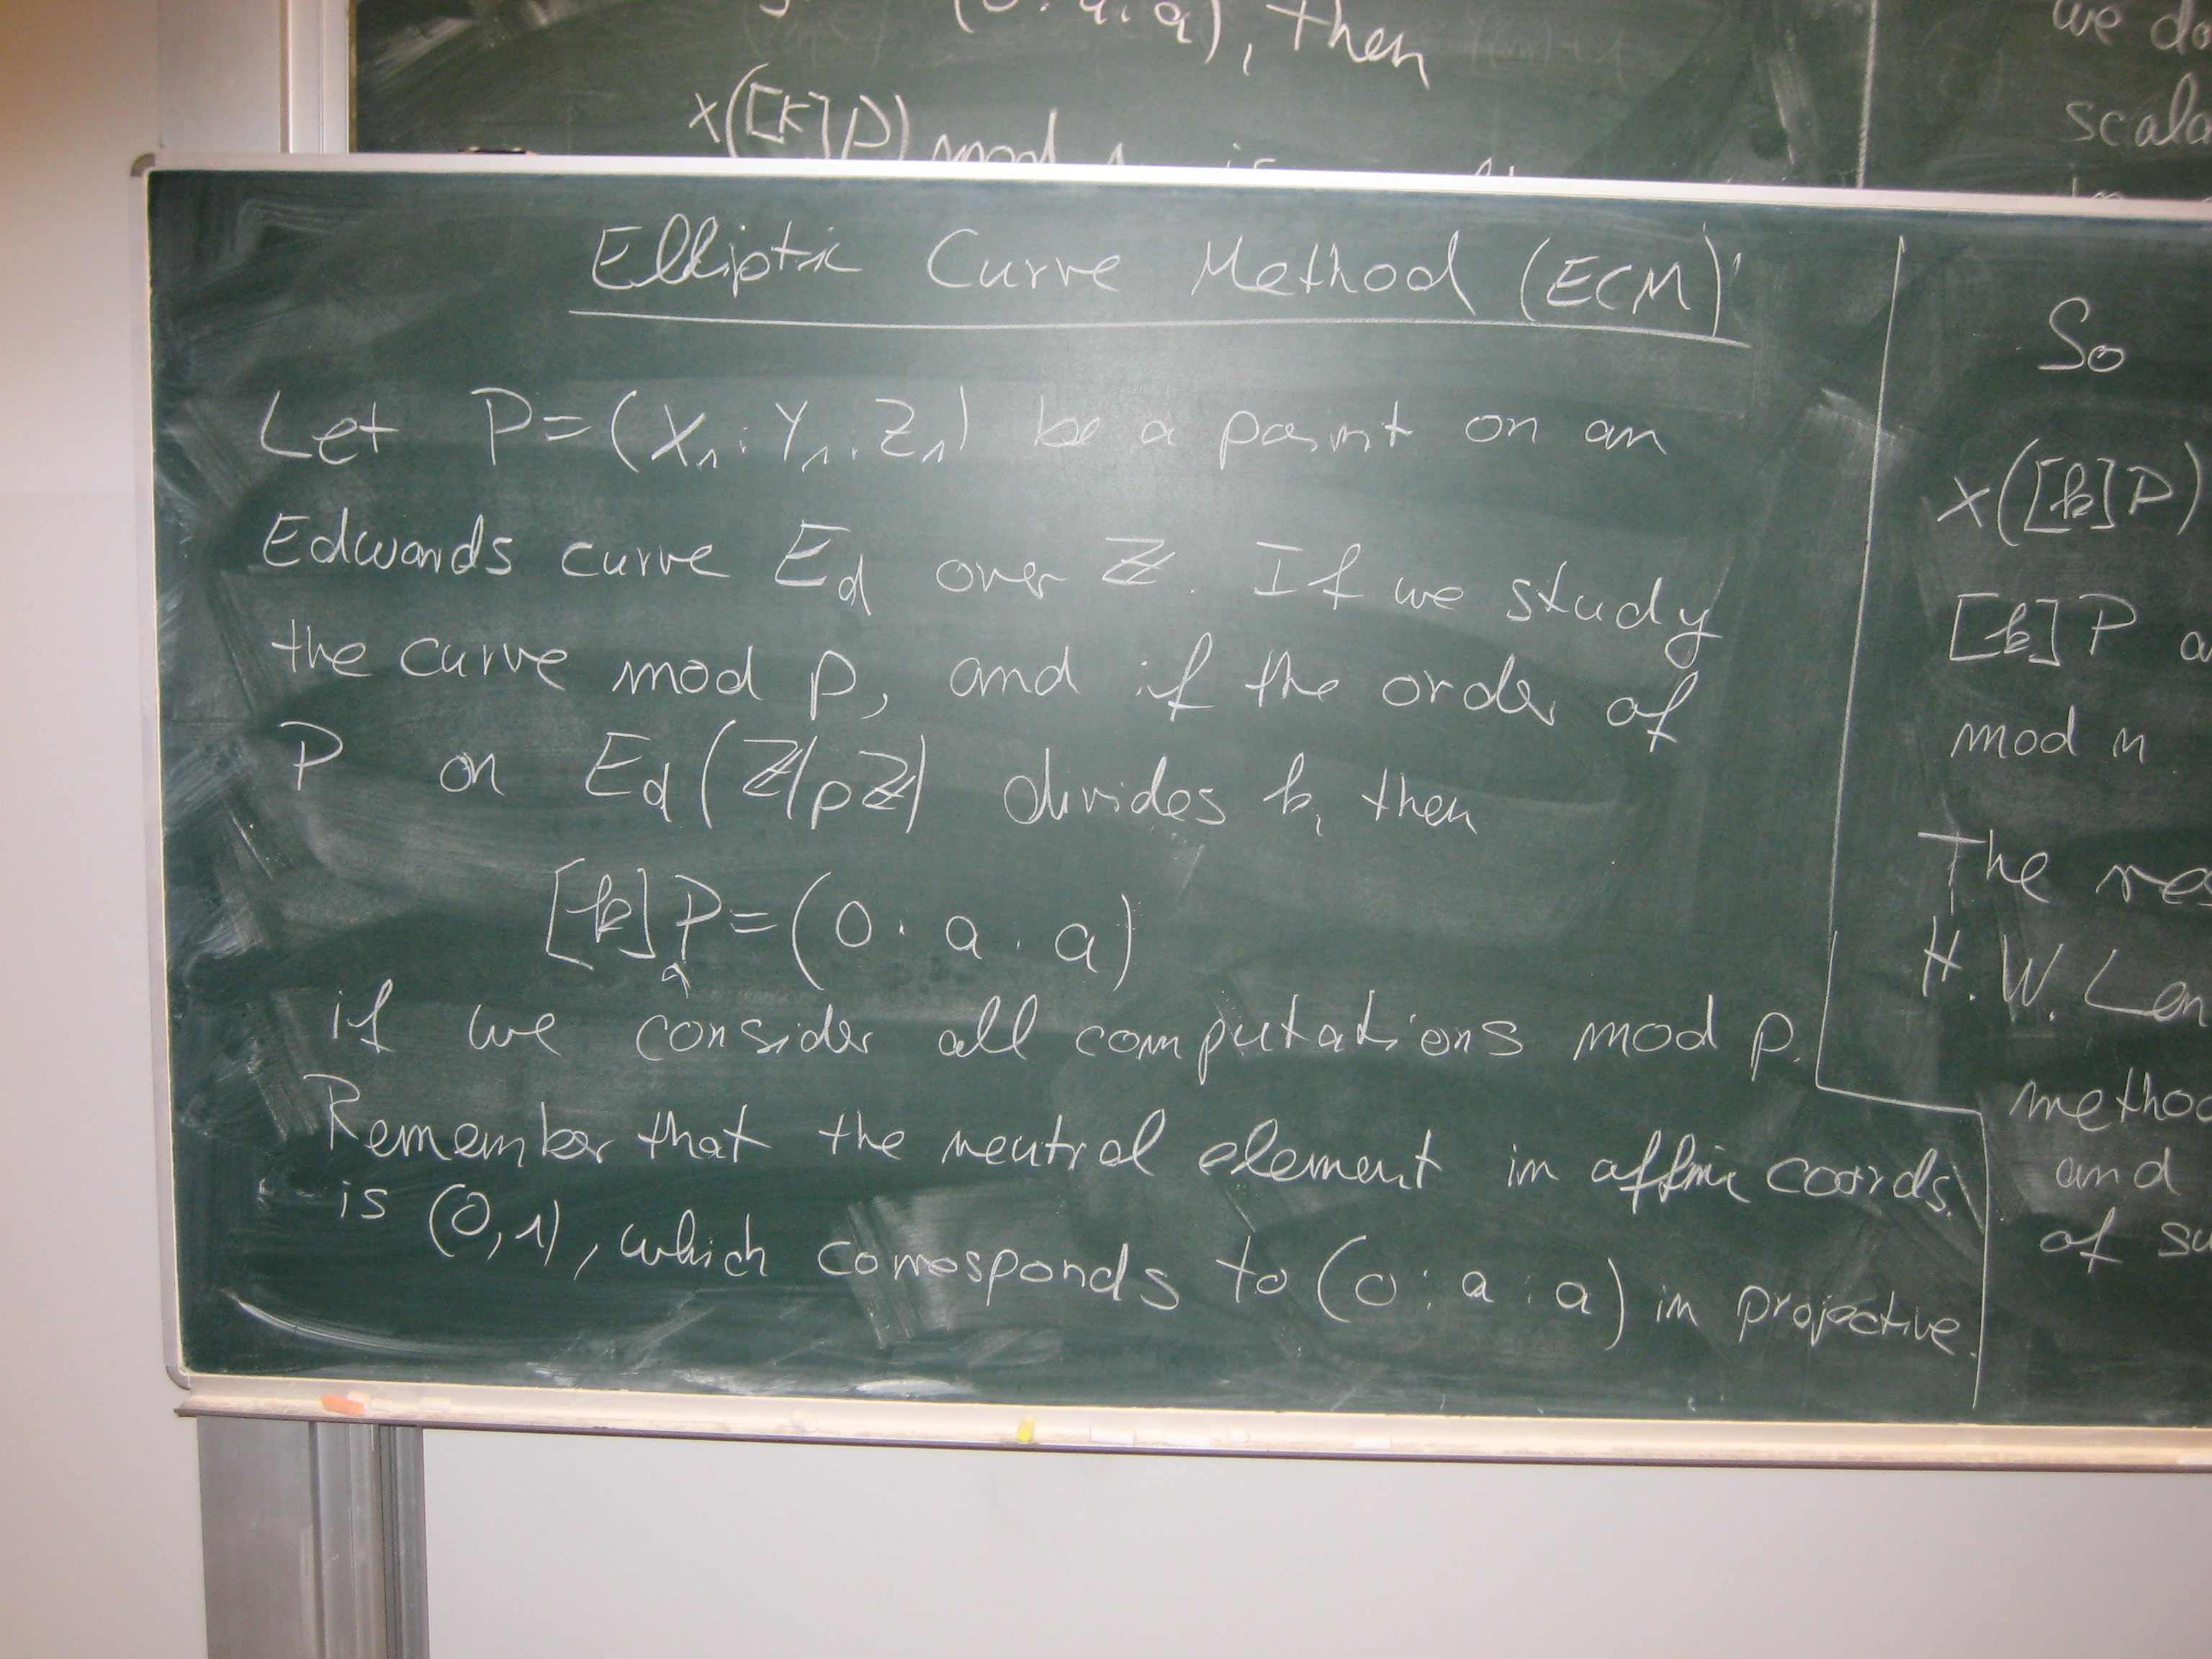 (0:a:a), then
x([k]P) mod
we do
scala
Elliptic Curve Method (ECM)
Let P=(X₁:Y₁:Z₁) be a point on an
Edwards curve E_d over ℤ. If we study
the curve mod p, and if the order of
P on E_d(ℤ/pℤ) divides k, then
[k]P=(0:a:a)
if we consider all computations mod p.
Remember that the neutral element in affine coords.
is (0,1), which corresponds to (0:a:a) in projective.
So
x([k]P)
[k]P a
mod n
The res
H.W. Len
metho
and
of su